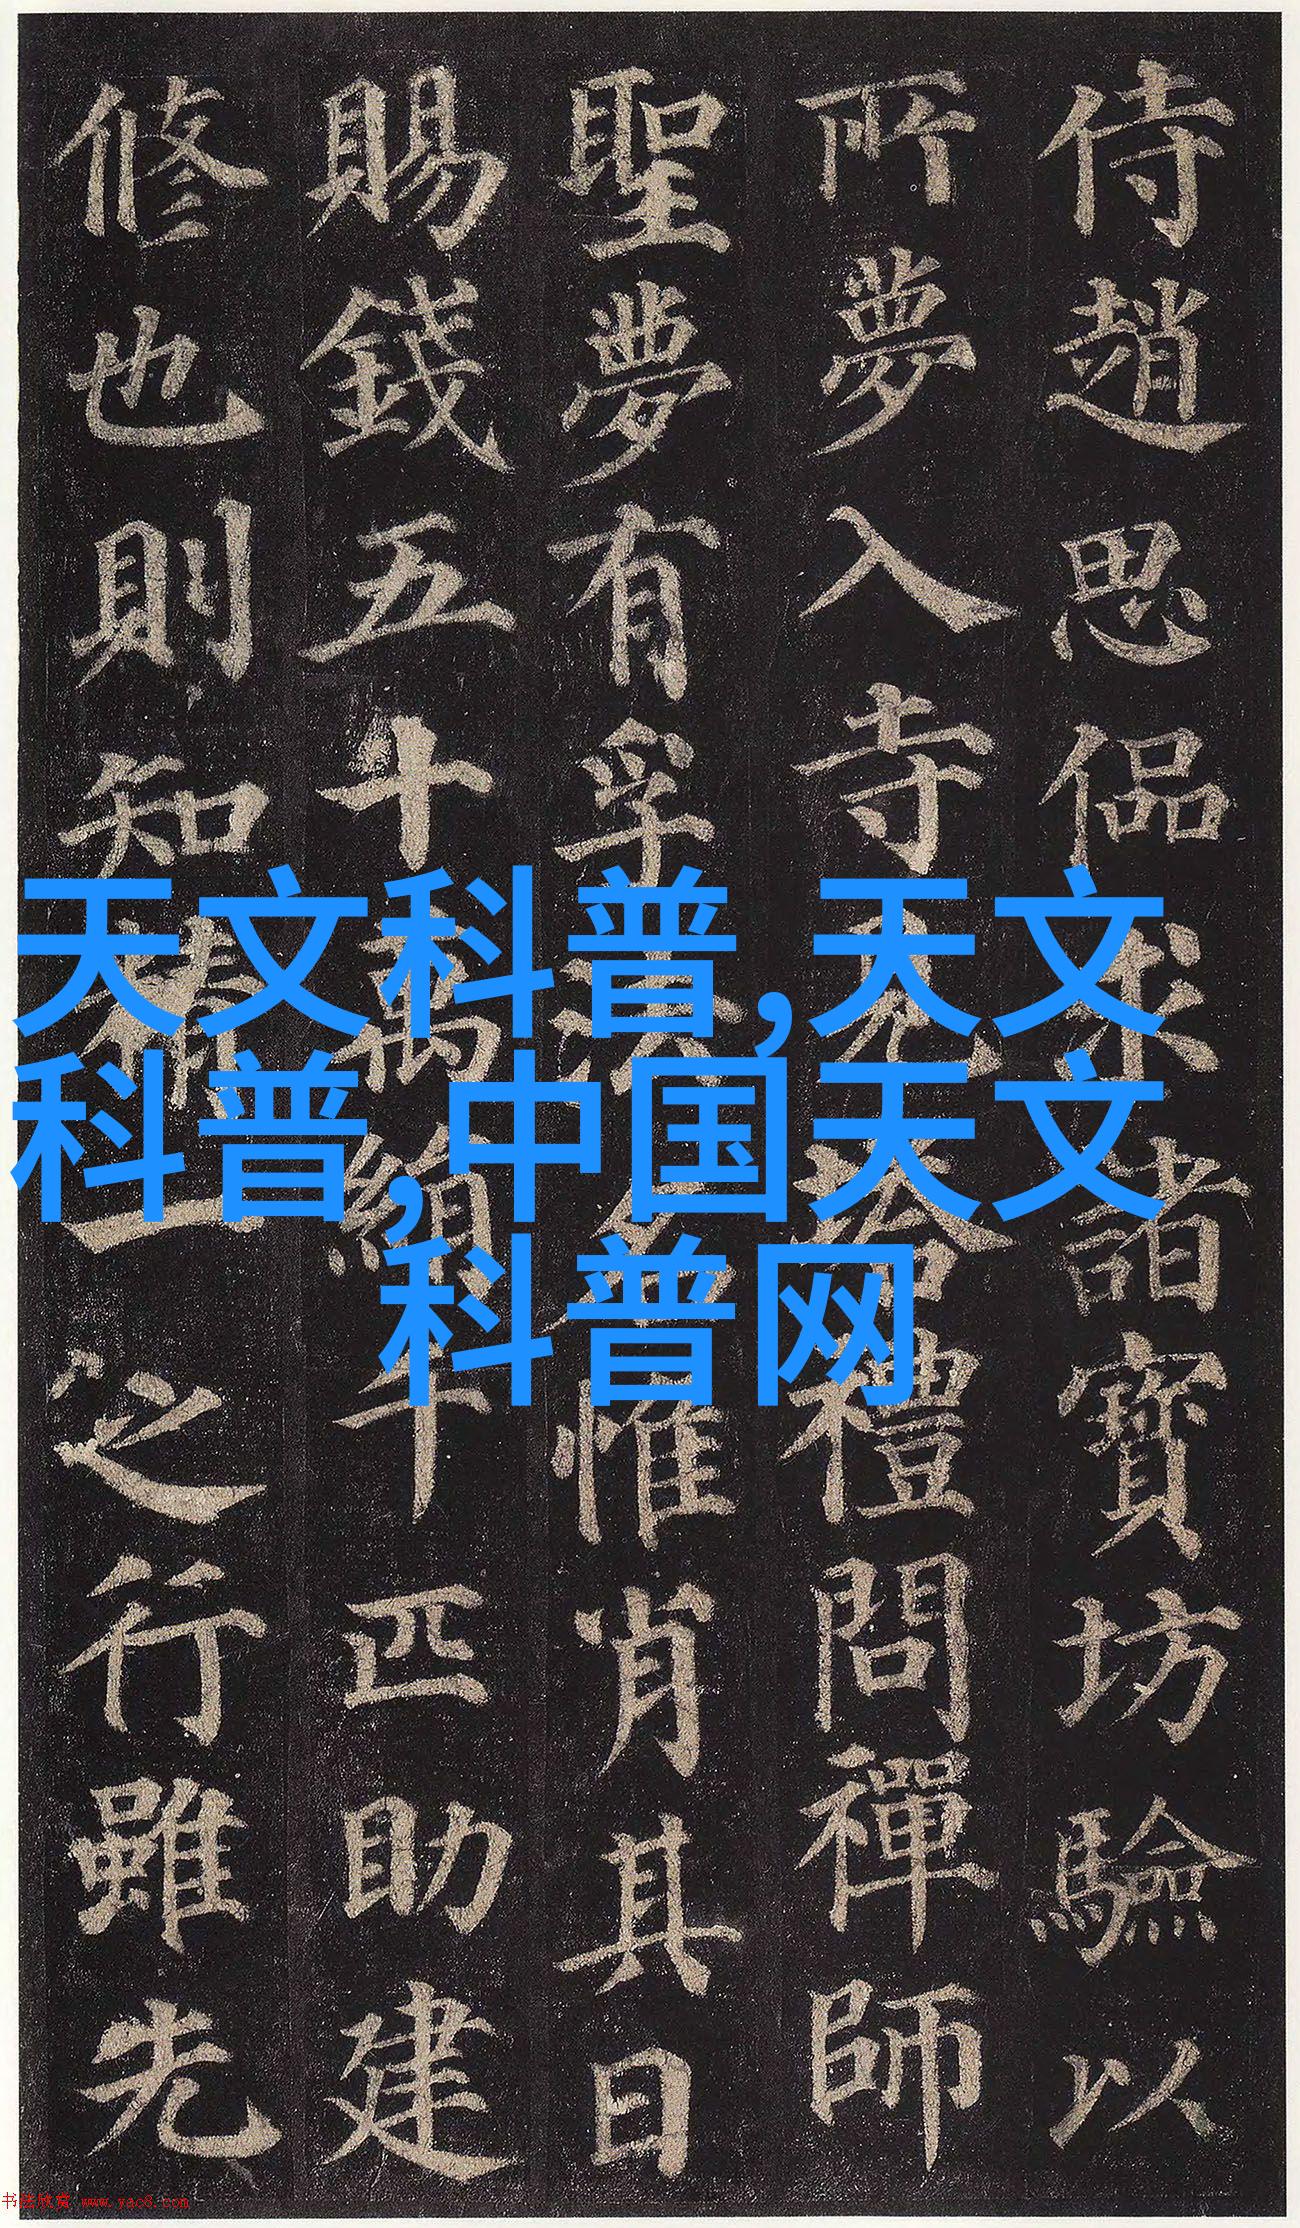 侍趙思偘求諸寶坊驗以
所夢入寺見塔禮問禪師
聖夢有孚法名惟肖其日
賜錢五十萬絹千匹助建
修也則知精一之行雖先
天文科普,天文
科普,中国天文
科普网
书法欣赏 www.yac8.com